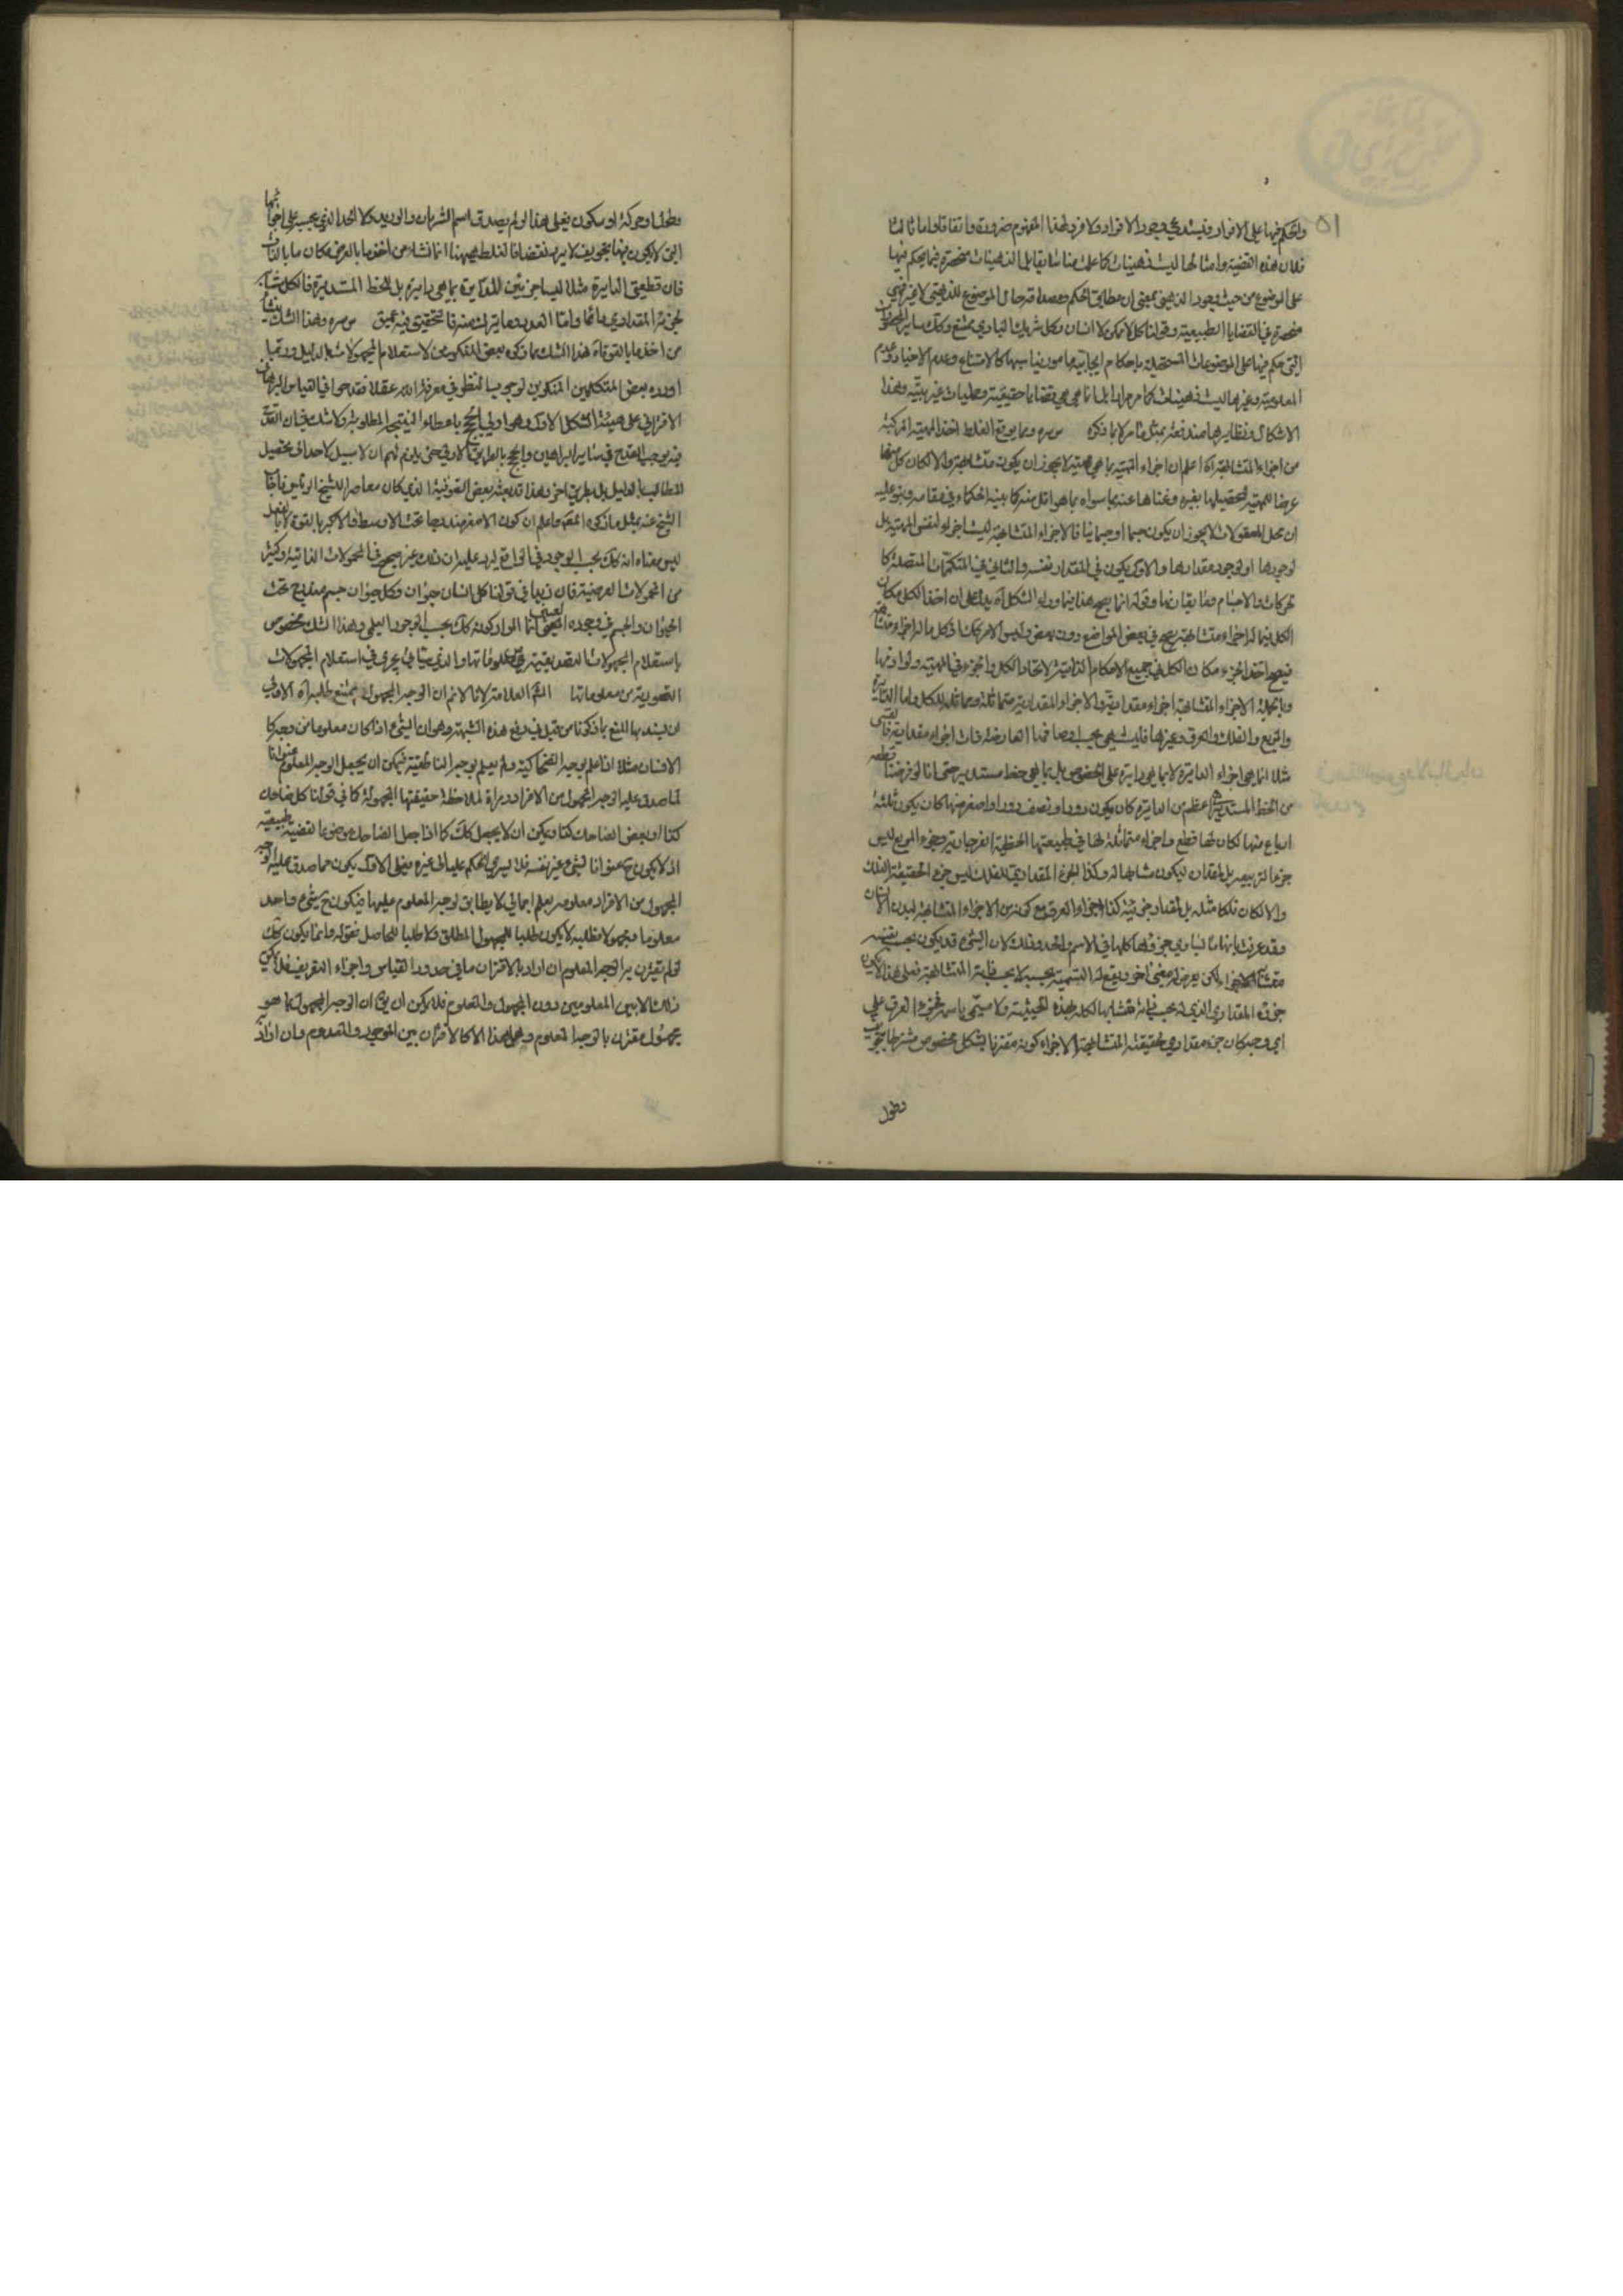 والحكم فيها على الافراد فيستدعي وجود الافراد ولا فرد لهذا المفهوم ضرورة واتفاقا واما ثالثا
فلان هذه القضية وامثالها ليست ذهنيات كما علمت مناسابقا بل الذهنيات منحصرة فيما يحكم فيها
على الموضوع من حيث وجوده الذهني بمعنى ان مطابق الحكم ومصداقه حال الموضوع للذهني لا غير فهي
منحصرة في القضايا الطبيعية وقولنا كل لاممكن لا انسان وكل شريك الباري ممتنع وكك ساير
التي حكم فيها على الموضوعات المستحيلة باحكام ايجابية ما يناسبها كالامتناع وعدم الاخبار وعدم
المعلومية وغيرها ليست ذهنيات كما مر مرارا بل انما هي قضايا حقيقية وحمليات غير بتية وهذا
الاشكال ونظايرها مندفعة بمثل ما مر لا بما ذكره س سره ومما يوقع الغلط اخذ المهية المركبة
من اجزاء المتشابهة اه اعلم ان اجزاء المهية بما هي مهية لا يجوز ان يكون متشابهة والا لكان كل منها
عرضا للمهية لتحصيلها بغيره وغناها عنه بما سواه بما هو اقل منه كما بينه الحكماء في مقامه وبنو عليه
ان محل المعقولات لا يجوز ان يكون جسما او جسمانيا فالاجزاء المتشابهة ليست اجزاء لنفس المهية بل
لوجودها او لوجود مقدارها والاول يكون في المقدار نفسه والثاني في المتكممات المتصلة كا
لحركات والاجسام وما يقارنها وقوله انما يصح هذا فيما وراء الشكل اه يدل على ان اخذ الكل مكان
الكل فيما له اجزاء متشابهة يصح في بعض المواضع دون بعض وليس الامر هكذا فكل ما له اجزاء متشابهة
فيصح اخذ الجزء مكان الكل في جميع الاحكام الذاتية لاتحاد الكل والجزء في المهية ولوازمها
وبالجملة الاجزاء المتشابهة اجزاء مقدارية والاجزاء المقدارية متماثلة ومماثلة للكل واما الدايرة
والمربع والفلك والعرق وغيرها فليست هي بحسب اوصافها العارضة ذات اجزاء مقدارية فالقسي
مثلا انما هي اجزاء الدايرة لا بما هي دايرة على الخصوص بل بما هي خط مستدير حتى انا لو فرضنا قطعة
من الخط المستدير اعظم من الدايرة كان يكون دورا ونصف دور او اصغر منها كان يكون ثلثة
ارباع منها لكان لها قطع واجزاء متماثلة لها في طبيعتها الخطية الفرجارية وجزء المربع ليس
جزءا لتربيعه بل لمقداره ليكون مشابها له وكذا الجزء المقداري للفلك ليس جزء الحقيقة الفلك
والا لكان فلكا مثله بل لمقدار جزئيته كذا اجزاء العرق مع كونه من الاجزاء المتشابهة لبدن الانسان
وقد عرفت بانها ما يساوي جزؤها كلها في الاسم والحد وذلك لان الشيء قد يكون بحسب نفسه
متشابه الاجزاء لكن يعرض له معنى اخر ويقع له التسمية بحسبه لا بحسب ذاته المتشابهة فعلى هذا لا يكون
جزؤه المقداري الذي له بحسب ذاته متشابها لكله بهذه الحيثية ولا مسمى باسمه فجزء العرق على
اي وجه كان جزء مقداري لحقيقته المتشابهة الاجزاء كونه مقترنا بشكل مخصوص مشترطا بتجويف
وطول
وطول او حركة او سكون فعلى هذا لو لم يصدق اسم الشريان والوريد ولا الحد الذي بحسبه على اجزائها
التي لا يكون بهذا تجويف لا يرد نقضا فالغلط ههنا انما نشاء من اخذ ما بالعرض مكان ما بالذات
فان قطعتي الدايرة مثلا ليسا جزئين للدايرة بما هي دايرة بل للخط المستدير فالكل مشابه
لجزئه المقداري دائما واما العدد وما يتركب منه فالتحقيق فيه عميق س سره وهذا الشك ينشأ
من اخذ ما بالقوة اه هذا الشك مما ذكره بعض المنكرين لاستعلام المجهولات بالدليل وربما
اورده بعض المتكلمين المنكرين لوجوب النظر في معرفة الله عقلا فقدحوا في القياس البرهاني
الاقتراني على هيئة الشكل الاول وهو اولى الحجج باعطاء النتيجة المطلوبة ولا شك في ان القدح
فيه يوجب القدح في ساير البراهين والحجج بالطريق الاولى حتى يلزم لهم ان لا سبيل لاحد الى تحصيل
المطالب بالدليل بل بطريق اخر وهذا قد بعثه بعض الصوفية الذي كان معاصرا للشيخ الرئيس فاجاب
الشيخ عنه بمثل ما ذكره المص واعلم ان كون الاصغر مندرجا تحت الاوسط والاكبر بالقوة لا بالفعل
ليس معناه انه كك بحسب الوجود في الواقع ليرد عليه ان ذلك غير صحيح في المحمولات الذاتية وكثير
من المحمولات العرضية فان زيدا في قولنا كل انسان حيوان وكل حيوان جسم مندرج تحت
الحيوان والجسم في وجوده العيني انما المراد كونه كك بحسب الوجود العلمي وهذا الشك مخصوص
باستعلام المجهولات التصديقية من معلوماتها والذي سيأتي يجري في استعلام المجهولات
التصورية من معلوماتها الشم العلامة لانا لانم ان الوجه المجهول يمتنع طلبه اه الاولى
ان يسند بها المنع بما ذكرنا من قبل في دفع هذه الشبهة وهو ان الشيء اذا كان معلوما من وجه كا
الانسان مثلا اذا علم بوجه الضحاكية ولم يعلم بوجه الناطقية فيمكن ان يجعل الوجه المعلوم عنوانا
لما صدق عليه الوجه المجهول من الافراد ومراة لملاحظة حقيقتها المجهولة كما في قولنا كل ضاحك
كذا او بعض الضاحك كذا ويمكن ان لا يجعل كك كما اذا جعل الضاحك موضوعا لقضية طبيعية
اذ لا يكون ح عنوانا لشيء غير نفسه فلا يسري الحكم عليه الى غيره فعلى الاول يكون ما صدق عليه الوجه
المجهول من الافراد معلومة بعلم اجمالي لا يطابق لوجه المعلوم عليها فيكون ح شيء واحد
معلوما ومجهولا فطلبه لا يكون طلبا للمجهول المطلق ولا طلبا للحاصل فقوله وانما يكون كك
لو لم يقترن به الوجه المعلوم ان اراد بالاقتران ما في حدود القياس واجزاء التعريف فلا يكون
ذلك الا بين المعلومين دون المجهول والمعلوم فلا يمكن ان يق ان الوجه المجهول بما هو
مجهول مقترن بالوجه المعلوم وهل هذا الا كالاقتران بين الموجود والمعدوم وان اراد